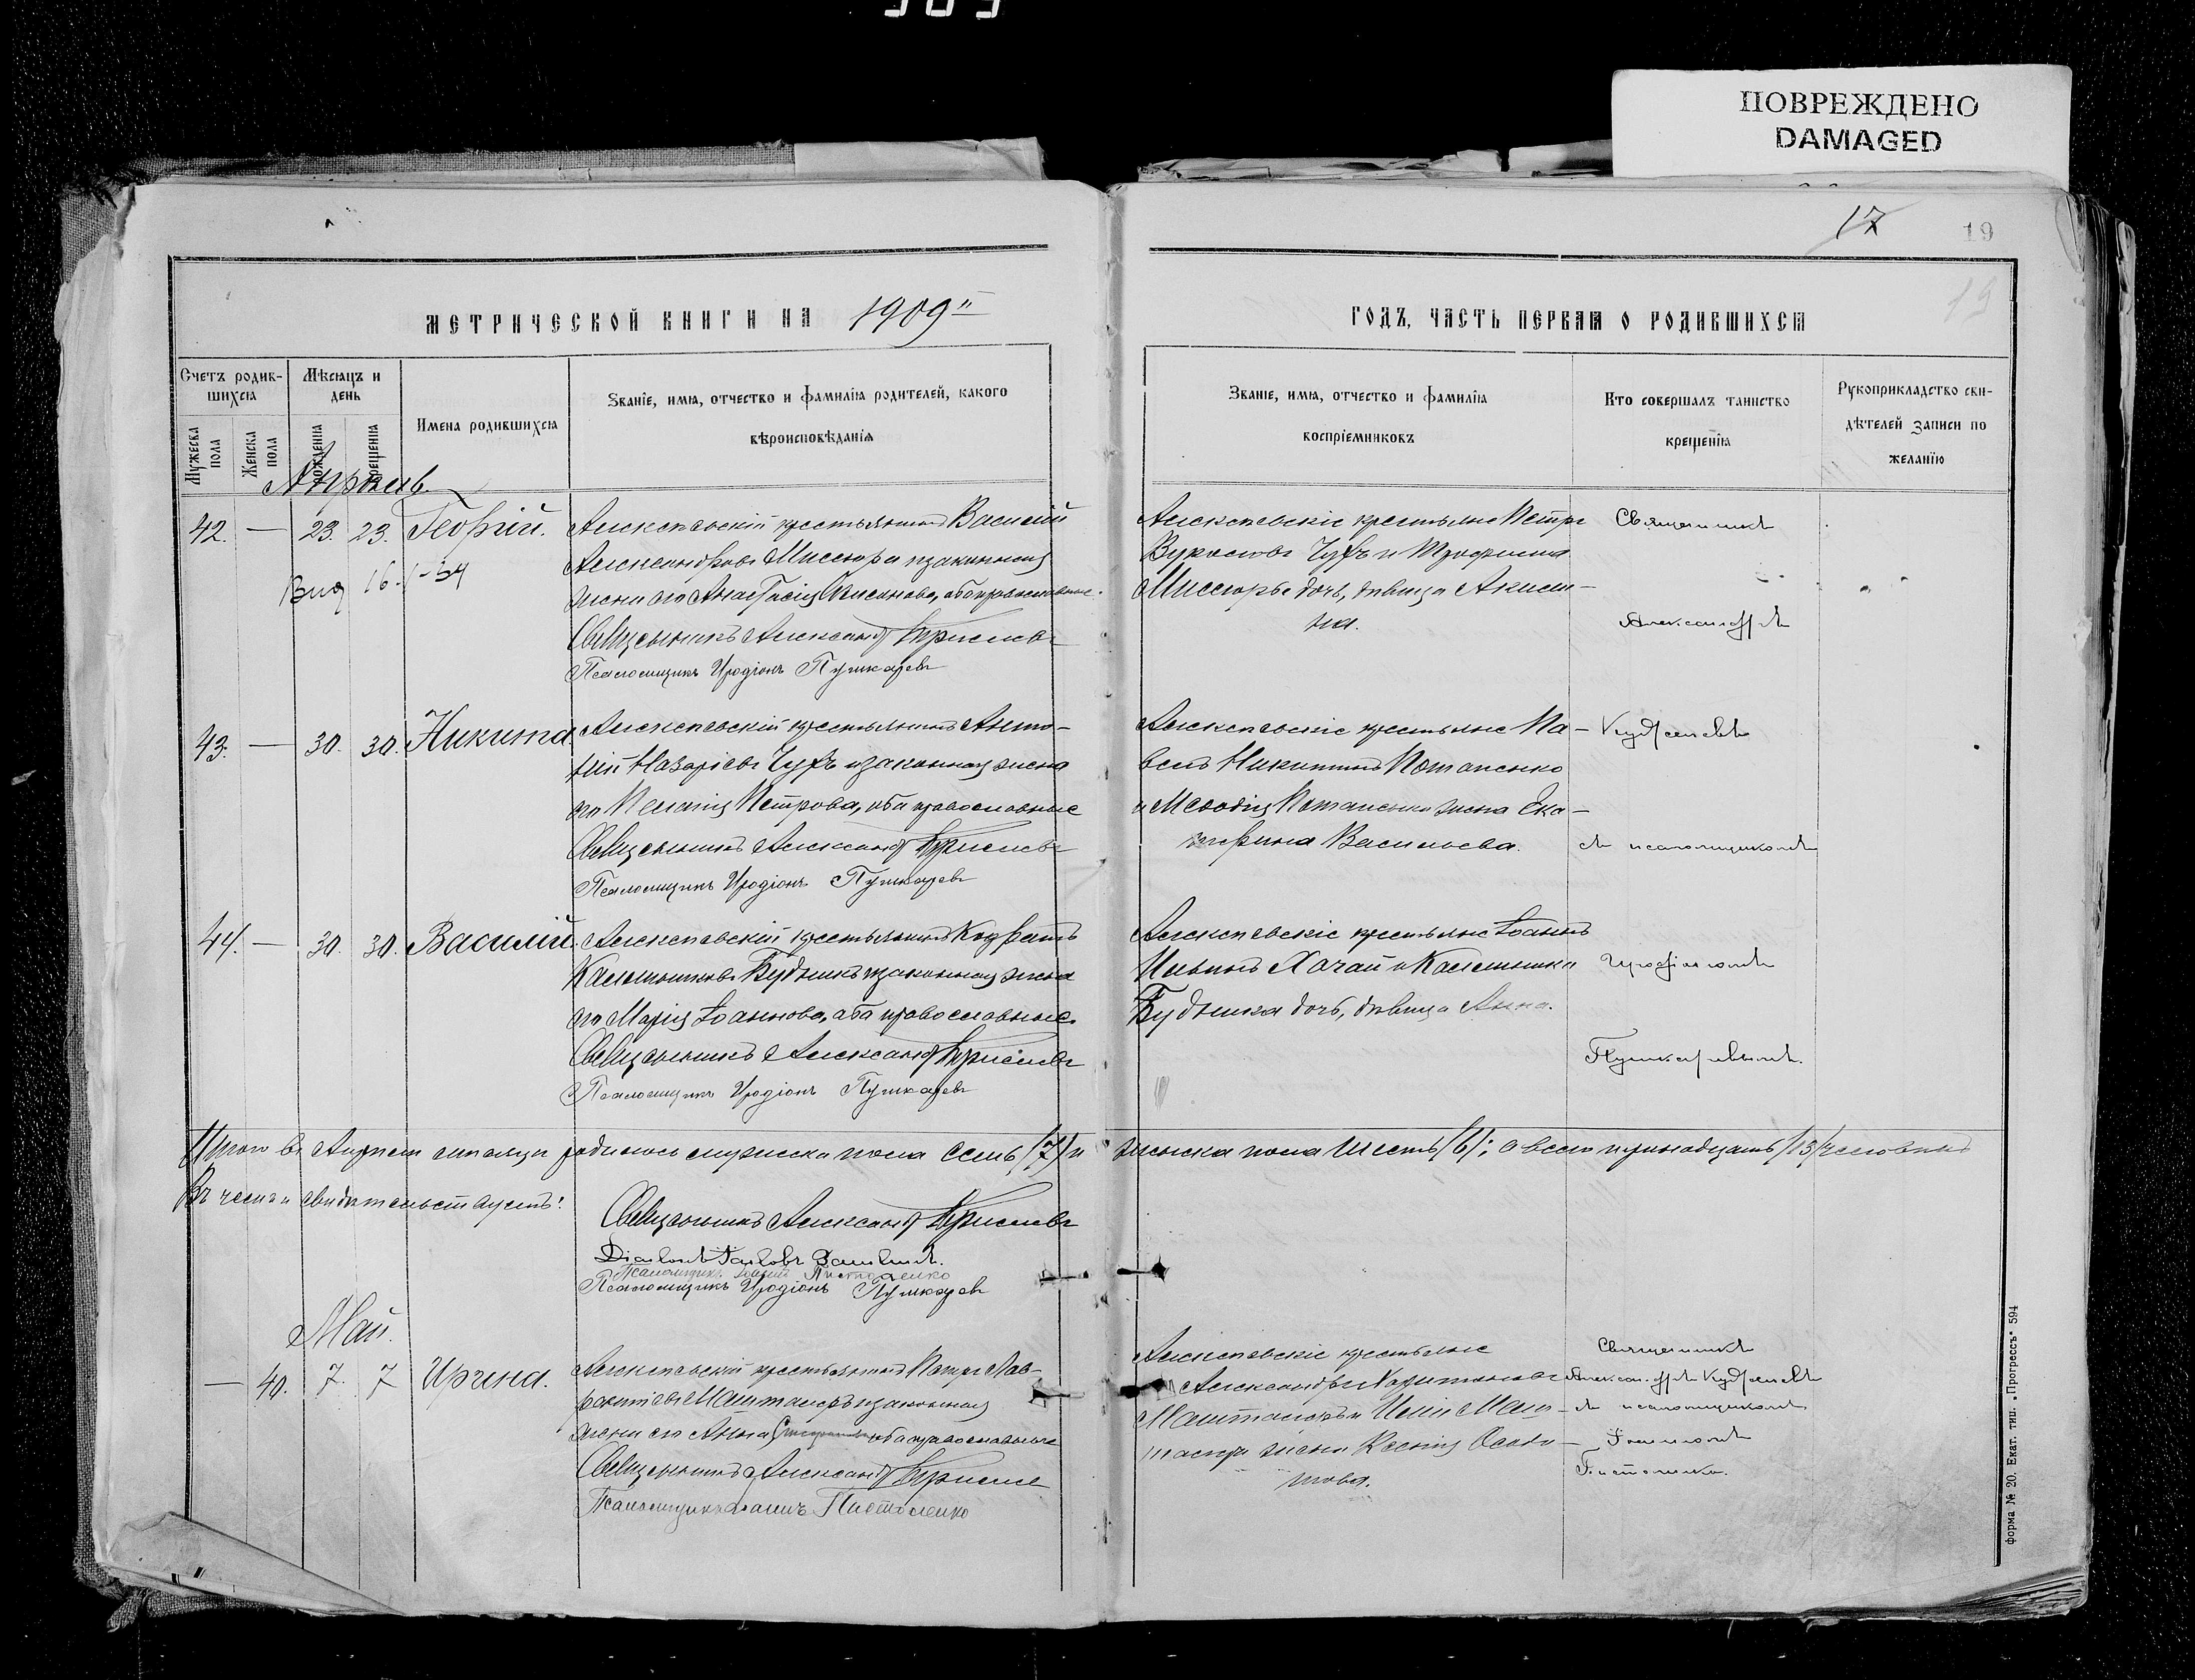 ПОВРЕЖДЕНО
DAMAGED
17
19
МЕТРИЧЕСКОЙ КНИГИ НА 1909й
ГОДЪ, ЧАСТЬ ПЕРВАЯ О РОДИВШИХСЯ
Счетъ родив-
шихся
Мужеска пола
Женска пола
Мѣсяцъ и
день
рожденія
крещенія
Имена родившихся
Званіе, имя, отчество и фамилія родителей, какого
вѣроисповѣданія
Званіе, имя, отчество и фамилія
воспріемниковъ
Кто совершалъ таинство
крещенія
Рукоприкладство сви-
дѣтелей записи по
желанію
Апрѣль.
42. — 23. 23. Георгій.
Алексѣевскій крестьянинъ Василій
Александровъ Миссюра и законная
жена его Анастасія, оба православные.
Священникъ Александръ
Псаломщикъ Иродіонъ Пушкаревъ
Алексѣевскіе крестьяне Петръ
Чубъ и Трофима
Миссюры дочь, дѣвица Акили-
на.
Священникъ
Александръ
16. 34
43. — 30. 30. Никита.
Алексѣевскій крестьянинъ Анто-
ній Назаріевъ Чубъ и законная жена
его Пелагія Петрова, оба православные
Священникъ Александръ
Псаломщикъ Иродіонъ Пушкаревъ
Алексѣевскіе крестьяне Па-
велъ Никитинъ Потапенко
и Меѳодія Потапенка жена Ека-
терина Васильева.
съ псаломщикомъ
44. — 30. 30. Василій.
Алексѣевскій крестьянинъ Кодратъ
Каллиниковъ Будникъ и законная жена
его Марія Іоаннова, оба православные.
Священникъ Александръ
Псаломщикъ Иродіонъ Пушкаревъ
Алексѣевскіе крестьяне Іоаннъ
Ильинъ Хочай и Каллиника
Будника дочь, дѣвица Анна.
Иродіономъ
Пушкаревымъ.
Итого въ Апрѣлѣ мѣсяцѣ родилось мужеска пола семь (7) и женска пола шесть (6); а всего тринадцать (13) человѣкъ
Въ чемъ и свидѣтельствуемъ:
Священникъ Александръ
Діаконъ
Псаломщикъ
Псаломщикъ Иродіонъ Пушкаревъ
Май.
— 40. 7. 7 Ирина.
Алексѣевскій крестьянинъ Петръ Лав-
рентіевъ Машталеръ и законная
жена его Анна оба православные
Священникъ Александръ
Псаломщикъ Іоаннъ
Алексѣевскіе крестьяне
Александръ Харитоновъ
Машталеръ и Иліи Маш-
талера жена Ксенія
Священникъ
Александръ
съ псаломщикомъ
Іоанномъ
форма № 20. Екат. тип. „Прогрессъ" 594